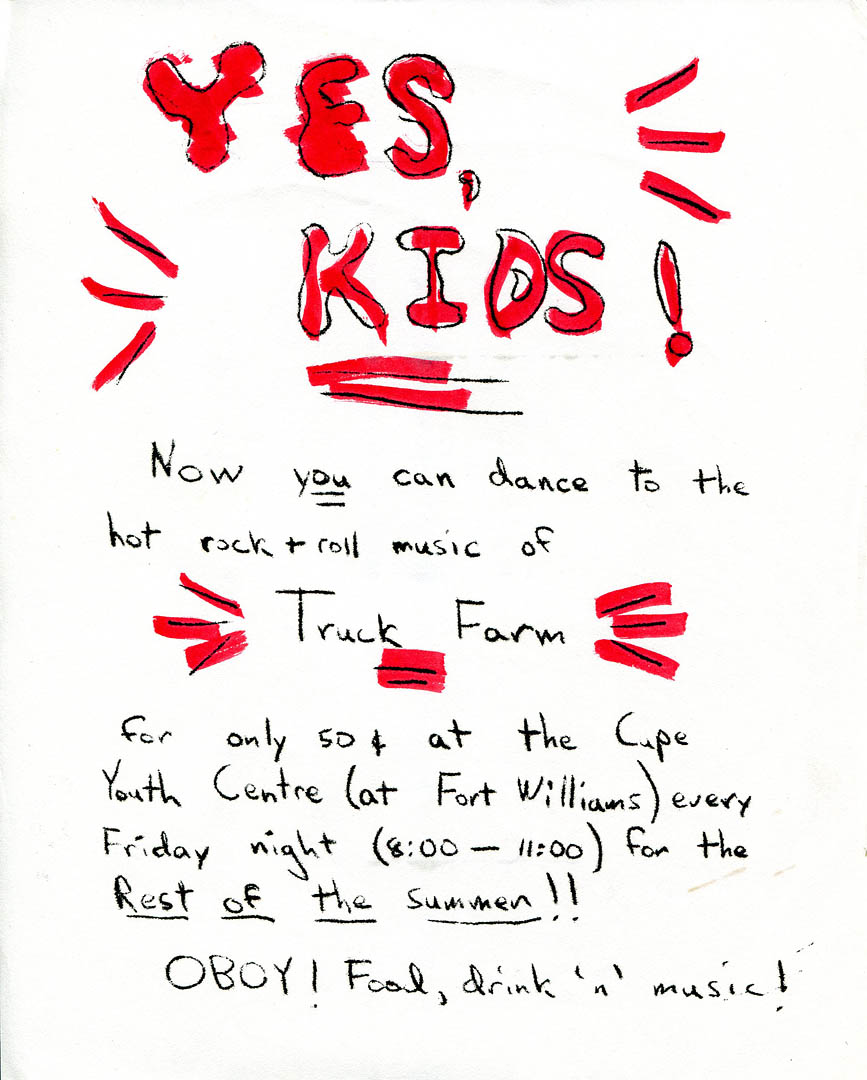 YES,
KIDS!
Now you can dance to the
hot rock + roll music of
Truck Farm
for only 50¢ at the Cape
Youth Centre (at Fort Williams) every
Friday night (8:00 — 11:00) for the
Rest of the summer!!
OBOY! Food, drink 'n' music!